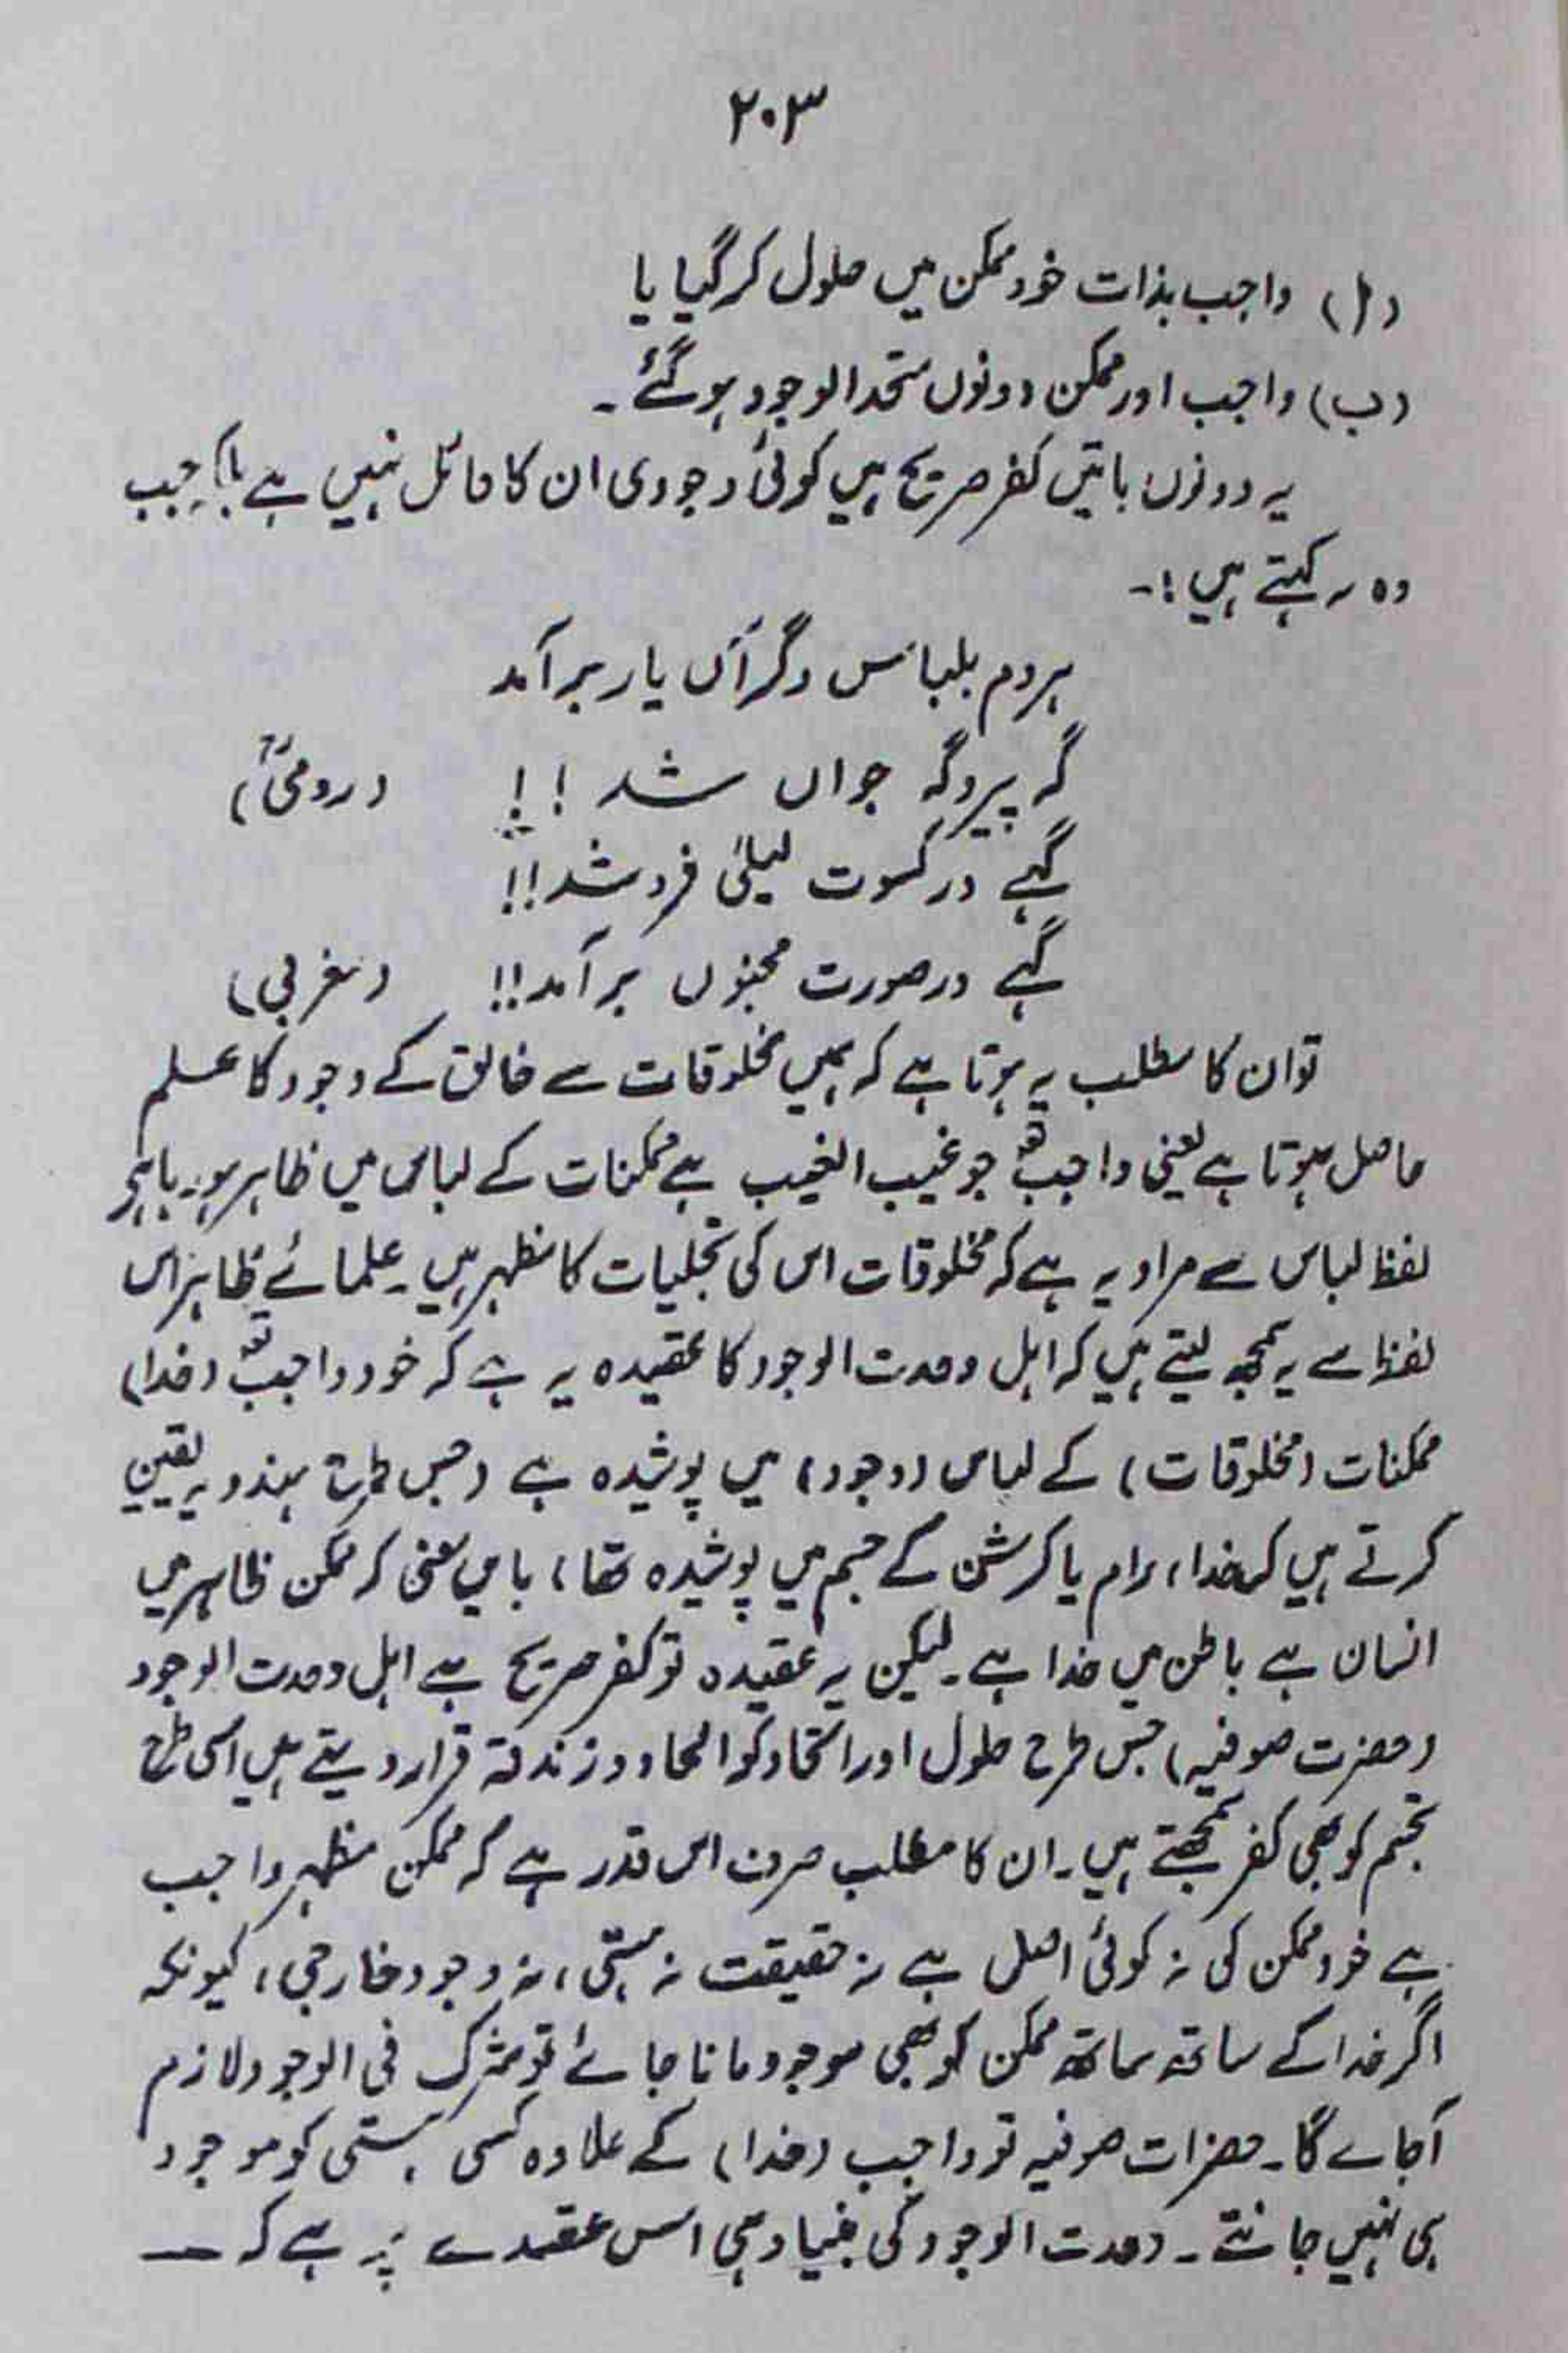 ۲۰۳
(ا) واجب بذات خود ممکن میں حلول کر گیا یا
(ب) واجب اور ممکن دونوں متحد الوجود ہو گئے ۔
یہ دونوں باتیں کفر صریح ہیں کوئی وجودی ان کا قائل نہیں ہے جب
وہ یہ کہتے ہیں :۔
ہر دم بلباس دگر آں یار بر آمد
گہ پیر و گہ جواں شد !! (رومیؒ)
گہے در کسوت لیلیٰ فرو شد !!
گہے در صورت مجنوں بر آمد !! (مغربی)
تو ان کا مطلب یہ ہوتا ہے کہ ہمیں مخلوقات سے خالق کے وجود کا علم
حاصل ہوتا ہے یعنی واجب تعہ جو غیب الغیب ہے ممکنات کے لباس میں ظاہر ہو رہا ہے
لفظ لباس سے مراد یہ ہے کہ مخلوقات اس کی تجلیات کا مظہر ہیں ۔ علمائے ظاہر اس
لفظ سے یہ سمجھ لیتے ہیں کہ اہل وحدت الوجود کا عقیدہ یہ ہے کہ خود واجب تعہ (خدا)
ممکنات (مخلوقات) کے لباس (وجود) میں پوشیدہ ہے (جس طرح ہندو یہ یقین
کرتے ہیں کہ خدا، رام یا کرشن کے جسم میں پوشیدہ تھا) بایں معنی کہ ممکن ظاہر میں
انسان ہے باطن میں خدا ہے ۔ لیکن یہ عقیدہ تو کفر صریح ہے اہل وحدت الوجود
(حضرت صوفیہ) جس طرح حلول اور اتحاد کو الحاد و زندقہ قرار دیتے ہیں اسی طرح
تجسم کو بھی کفر سمجھتے ہیں ۔ ان کا مطلب صرف اس قدر ہے کہ ممکن مظہر واجب
ہے خود ممکن کی نہ کوئی اصل ہے نہ حقیقت نہ ہستی، نہ وجود خارجی، کیونکہ
اگر خدا کے ساتھ ساتھ ممکن کو بھی موجود مانا جائے تو شرک فی الوجود لازم
آجائے گا ۔ حضرات صوفیہ تو واجب (خدا) کے علاوہ کسی ہستی کو موجود
ہی نہیں جانتے ۔ وحدت الوجود کی بنیاد ہی اس عقیدے پر ہے کہ —